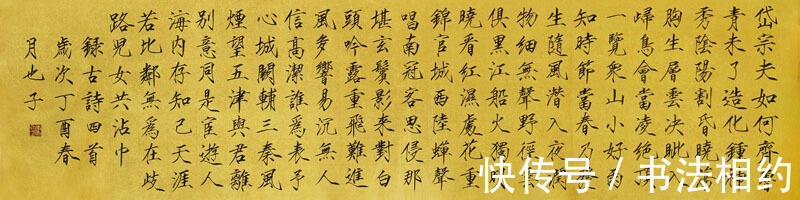 岱宗夫如何齊
青未了造化鍾
秀陰陽割昏曉
胸生層雲決眦
歸鳥會當凌絕
一覽衆山小好雨
知時節當春乃
生隨風潛入夜
物細無聲野徑
俱黑江船火獨
曉看紅濕處花重
錦官城西陸蟬聲
唱南冠客思侵那
堪玄鬢影來對白
頭吟露重飛難進
風多響易沉無人
信高潔誰爲表予
心城闕輔三秦風
煙望五津與君離
別意同是宦遊人
海内存知己天涯
若比鄰無爲在歧
路兒女共沾巾
錄古詩四首
歲次丁酉春
月也子
快传号 / 书法相约